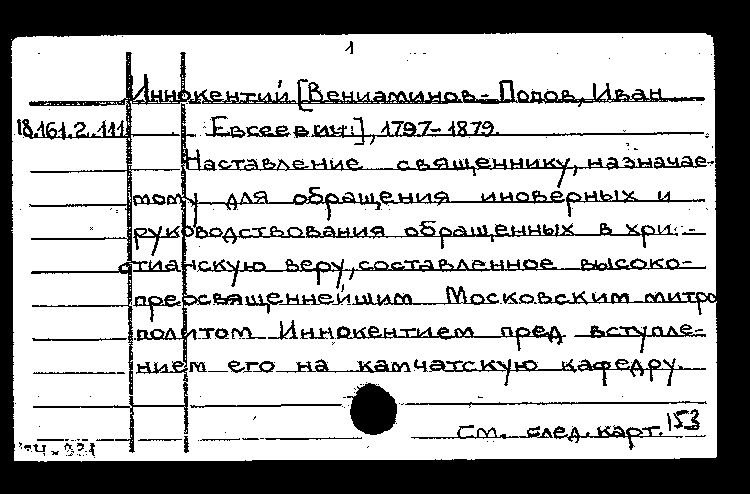 1
Иннокентий [Вениаминов-Попов, Иван
18.161.2.111 Евсеевич], 1797-1879.
Наставление священнику, назначае-
тому для обращения иноверных и
руководствования обращенных в хри-
стианскую веру, составленное высоко-
преосвященнейшим Московским митро
политом Иннокентием пред вступле-
нием его на камчатскую кафедру.
См. след. карт. 153